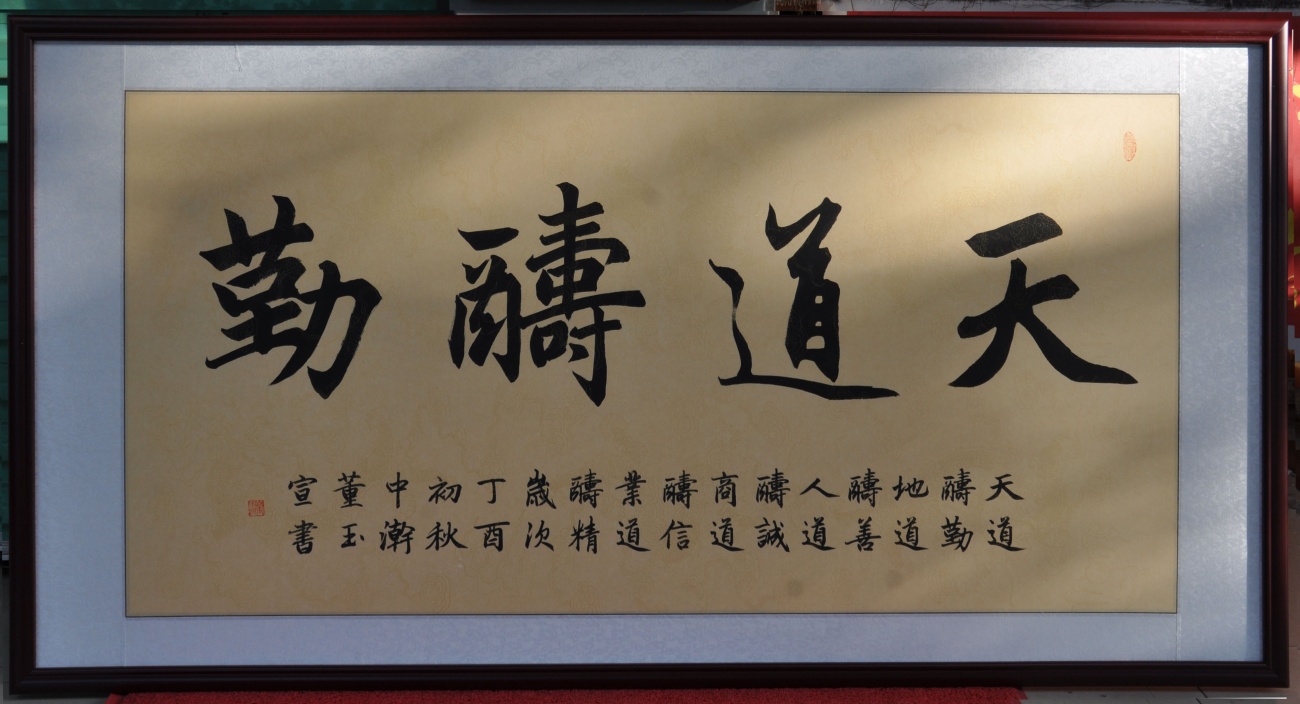 天道醻勤
天道
醻勤
地道
醻善
人道
醻誠
商道
醻信
業道
醻精
歲次
丁酉
初秋
中澣
董玉
宣書